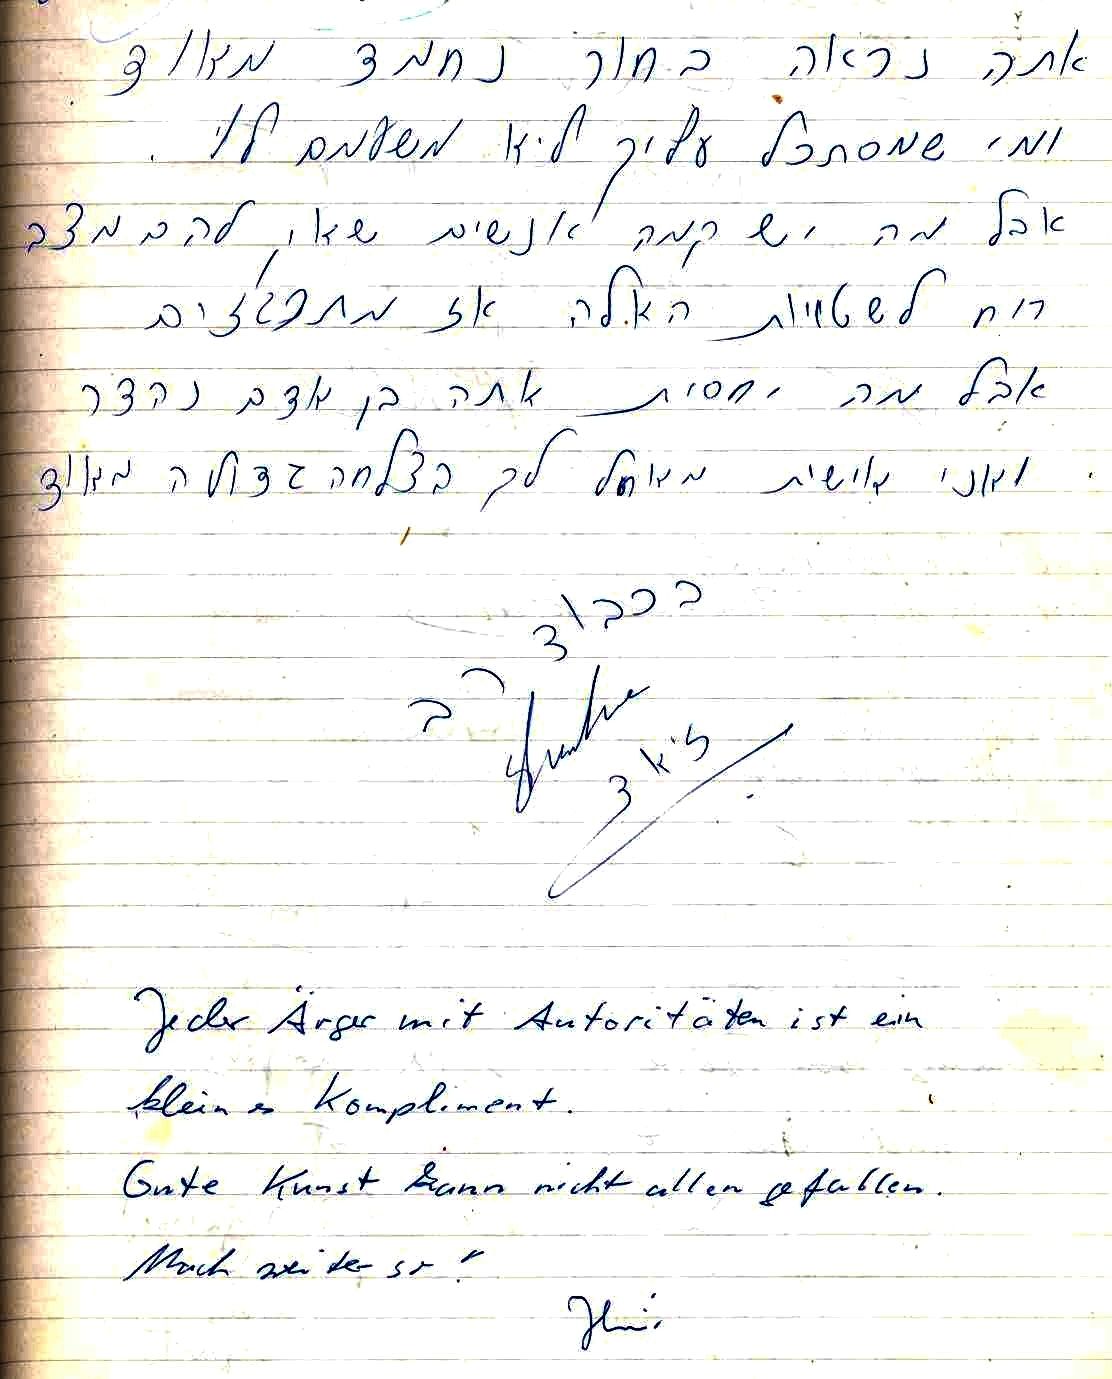 אתה נראה בחור נחמד מאוד
ומי שמסתכל עליך לא משעמם לו.
אבל מה יש קמה אנשים שאין להם מצב
רוח לשטויות האלה אז מתרגזים
אבל מה יחסית אתה בן אדם נהדר
ואני אישית מאחל לך בצלחה גדולה מאוד
בכבוד
רב
ליאד
Jeder Ärger mit Autoritäten ist ein
kleines Kompliment.
Gute Kunst kann nicht allen gefallen.
Mach weiter so!